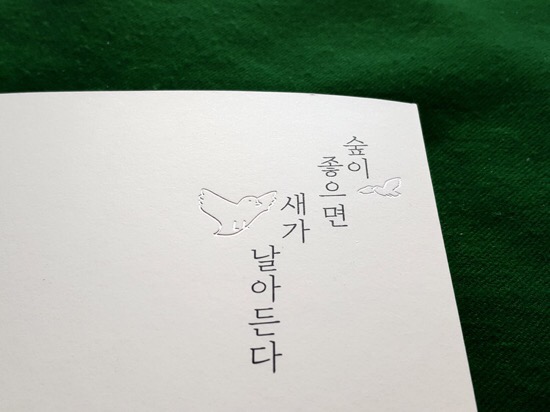 숲이
좋으면
새가
날아든다